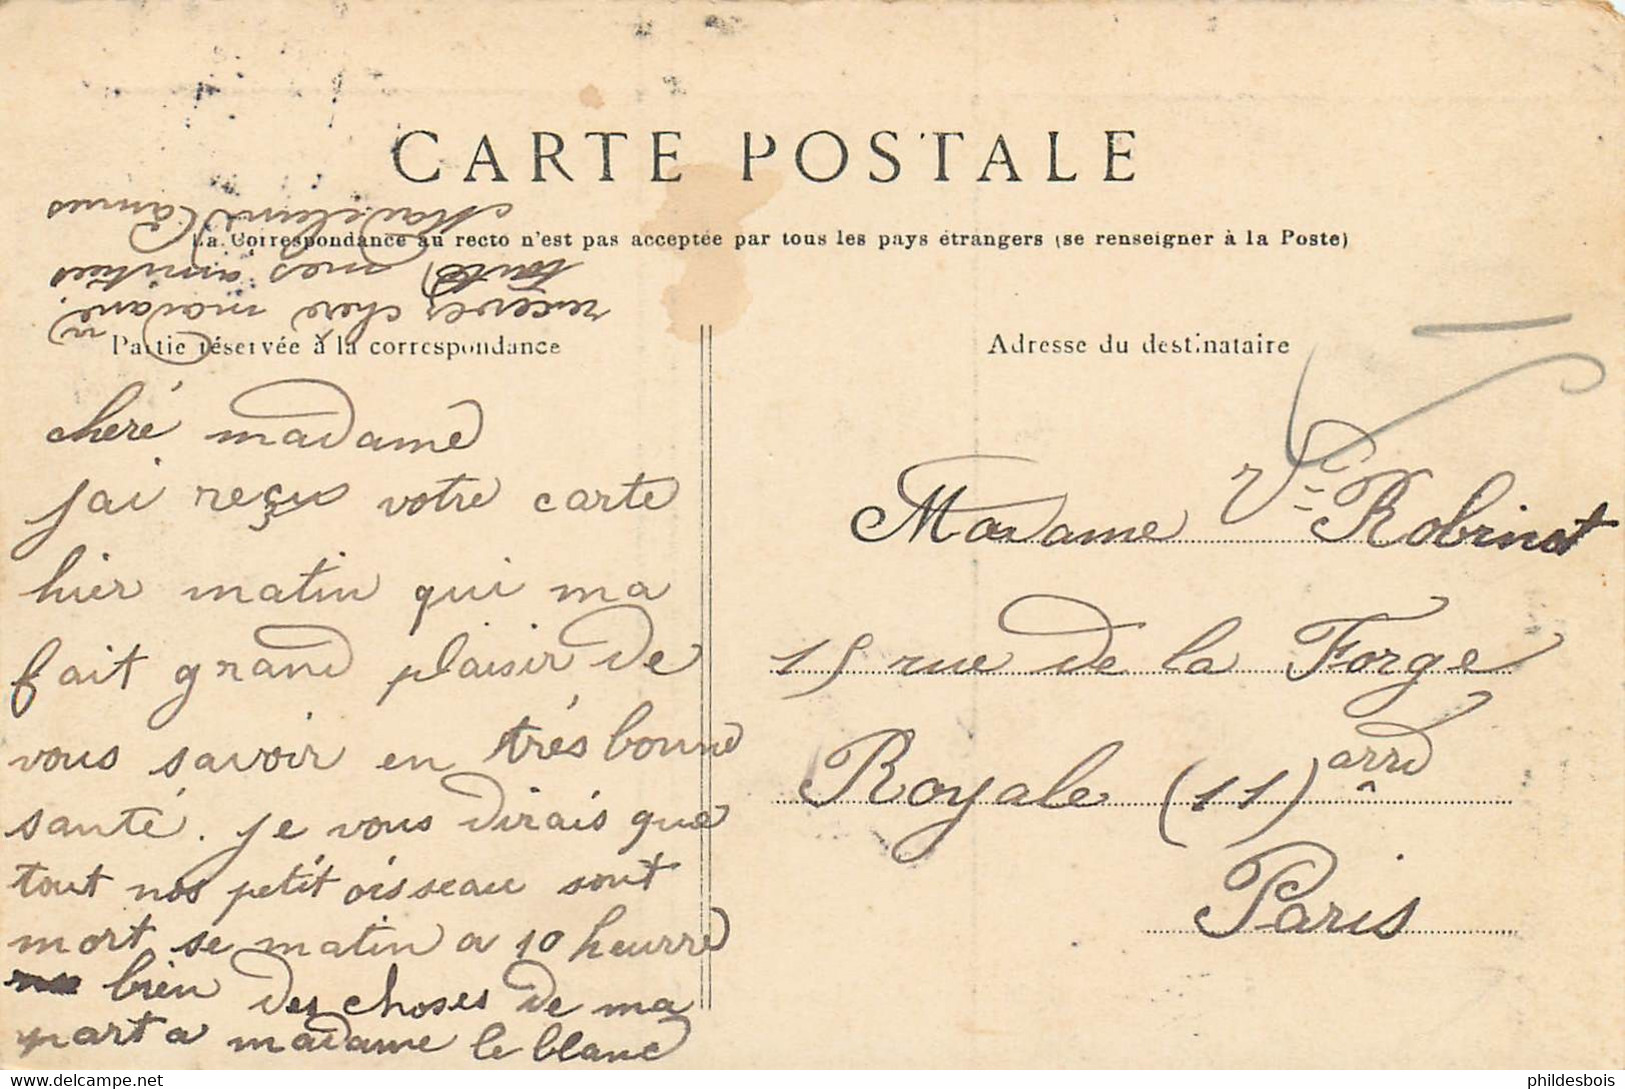 CARTE POSTALE
La Correspondance au recto n'est pas acceptée par tous les pays étrangers (se renseigner à la Poste)
Partie réservée à la correspondance
Adresse du destinataire
cheré madame
jai reçus votre carte
hier matin qui ma
fait grand plaisir de
vous savoir en trés bonne
santé. je vous dirais que
tout nos petit oisseau sont
mort se matin a 10 heurre
bien des choses de ma
part a madame le blanc
recever chere madame
toute mes amities
Madeleine
Madame Ve Robinot
15 rue de la Forge
Royale (11) arrd
Paris
delcampe.net
phildesbois